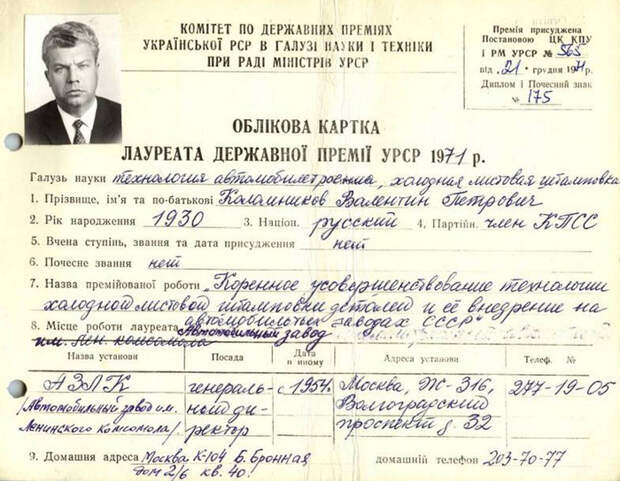 КОМІТЕТ ПО ДЕРЖАВНИХ ПРЕМІЯХ
УКРАЇНСЬКОЇ РСР В ГАЛУЗІ НАУКИ І ТЕХНІКИ
ПРИ РАДІ МІНІСТРІВ УРСР
Премія присуджена
Постановою ЦК КПУ
і РМ УРСР № 565
від „21” грудня 1971 р.
Диплом і Почесний знак
№ 175
ОБЛІКОВА КАРТКА
ЛАУРЕАТА ДЕРЖАВНОЇ ПРЕМІЇ УРСР 1971 р.
Галузь науки технология автомобилестроения, холодная листовая штамповка
1. Прізвище, ім'я та по-батькові Коломников Валентин Петрович
2. Рік народження 1930 3. Націон. русский 4. Партійн. член КПСС
5. Вчена ступінь, звання та дата присудження нет
6. Почесне звання нет
7. Назва премійованої роботи „Коренное усовершенствование технологии
холодной листовой штамповки деталей и её внедрение на
автомобильных заводах СССР"
8. Місце роботи лауреата Автомобильный завод
им. Лен. комсомола
Назва установи Посада Дата в ньому Адреса установи Телеф. №
АЗЛК генераль- с 1954г. Москва, Ж-316, 277-19-05
/Автомобильный завод им. ный ди- Волгоградский
Ленинского Комсомола/. ректор проспект д. 32
9. Домашня адреса Москва К-104 Б. Бронная домашній телефон 203-70-77
дом 2/6 кв. 40.